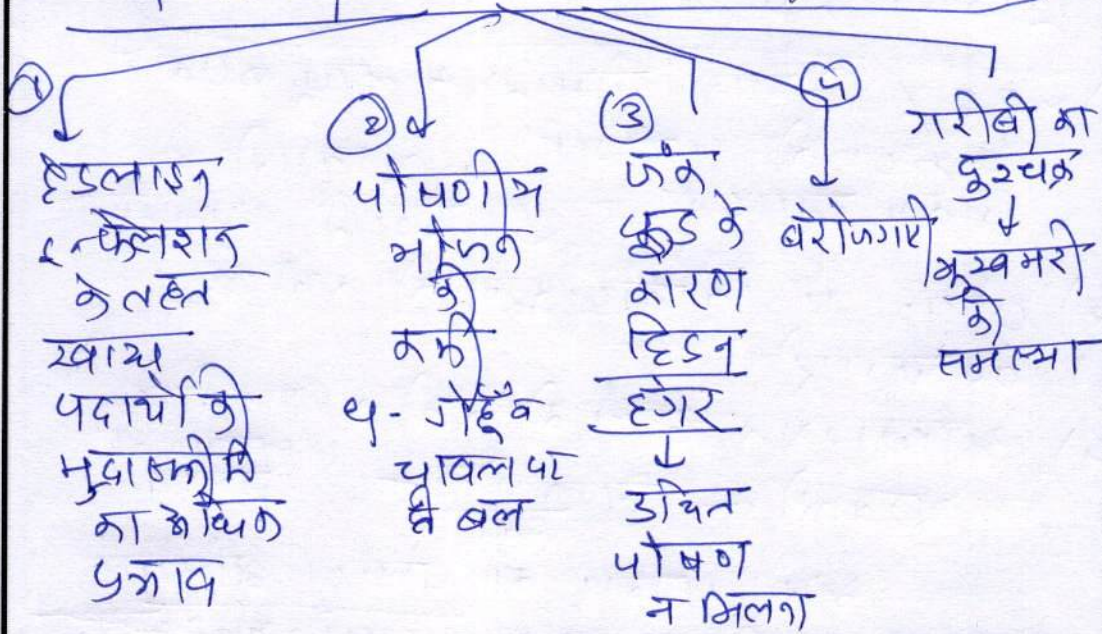 ①
हेडलाइन
इन्फ्लेशन
के तहत
खाद्य
पदार्थो की
मुद्रास्फीति
का अधिक
प्रभाव
②
पोषणीय
भोजन
की
कमी
गेहूँ व
चावल पर
ही बल
③
जंक
फूड के
कारण
हिडन
हंगर
↓
उचित
पोषण
न मिलना
④
बेरोजगारी
गरीबी का
दुश्चक्र
↓
भूखमरी
की
समस्या